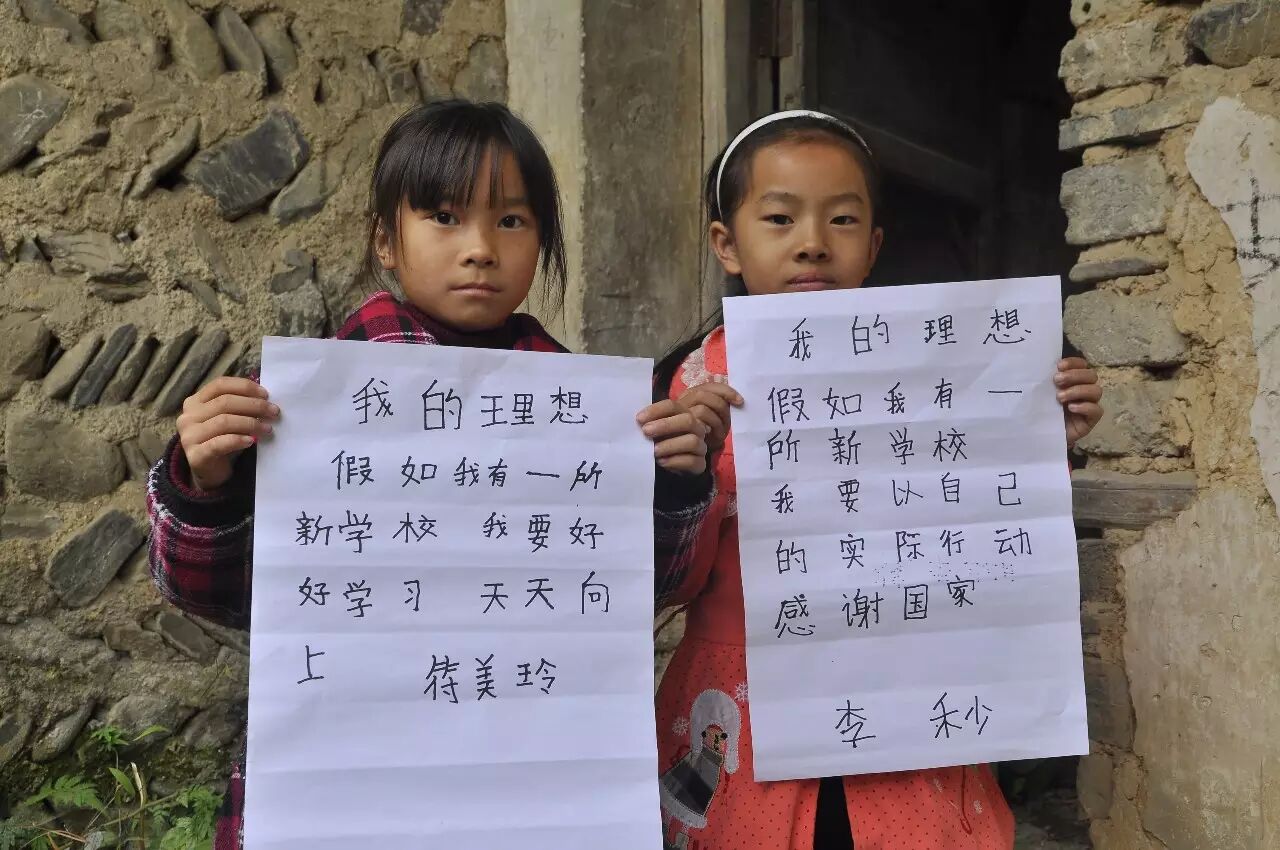 我的理想
假如我有一所
新学校 我要好
好学习 天天向
上 待美玲
我的理想
假如我有一
所新学校
我要以自己
的实际行动
感谢国家
李 秒